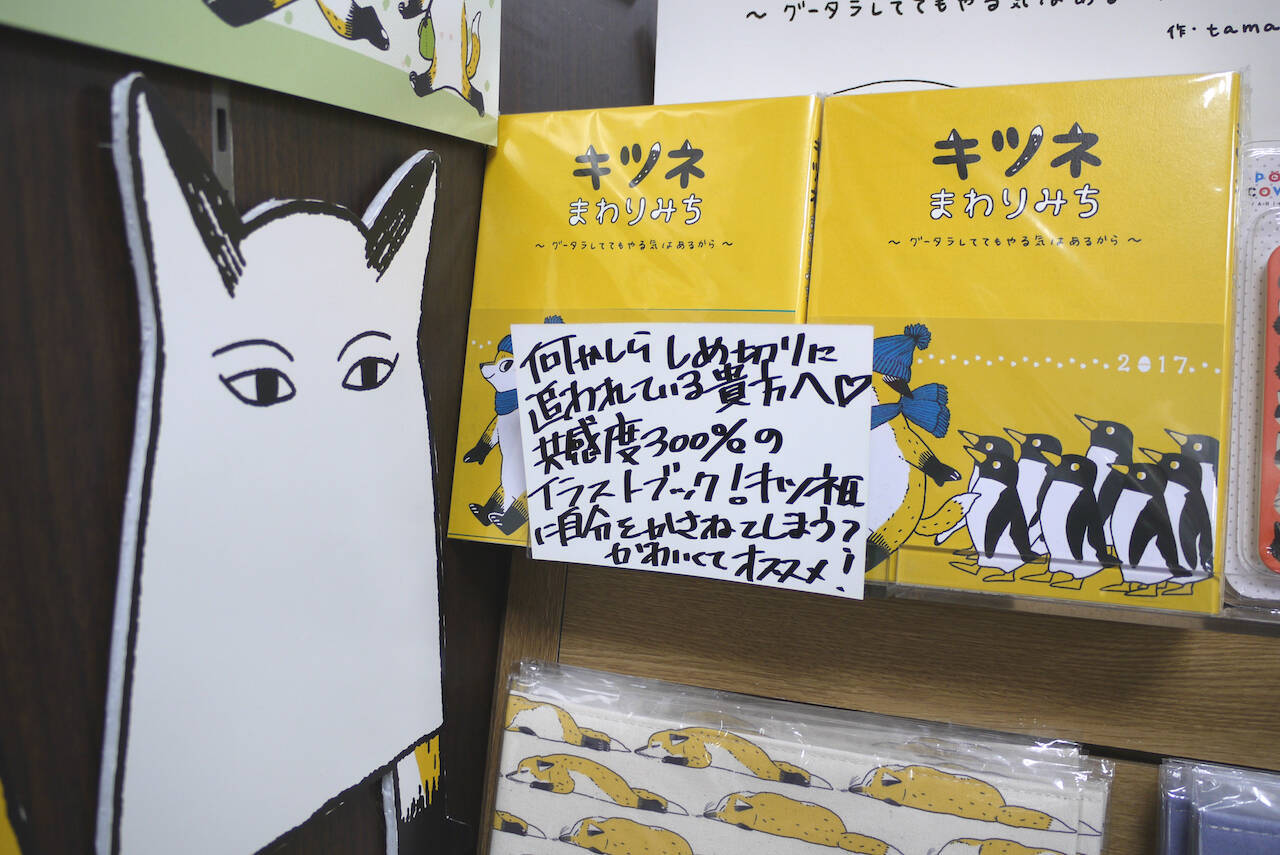 ～グータラしててもやる気はあるから
作・tama
キツネ
まわりみち
～グータラしててもやる気はあるから～
キツネ
まわりみち
～グータラしててもやる気はあるから～
2017
何かしら しめ切りに
追われている貴方へ♡
共感度300%の
イラストブック!キツネ
に自分をかさねてしまうっ
かわいくてオススメ!